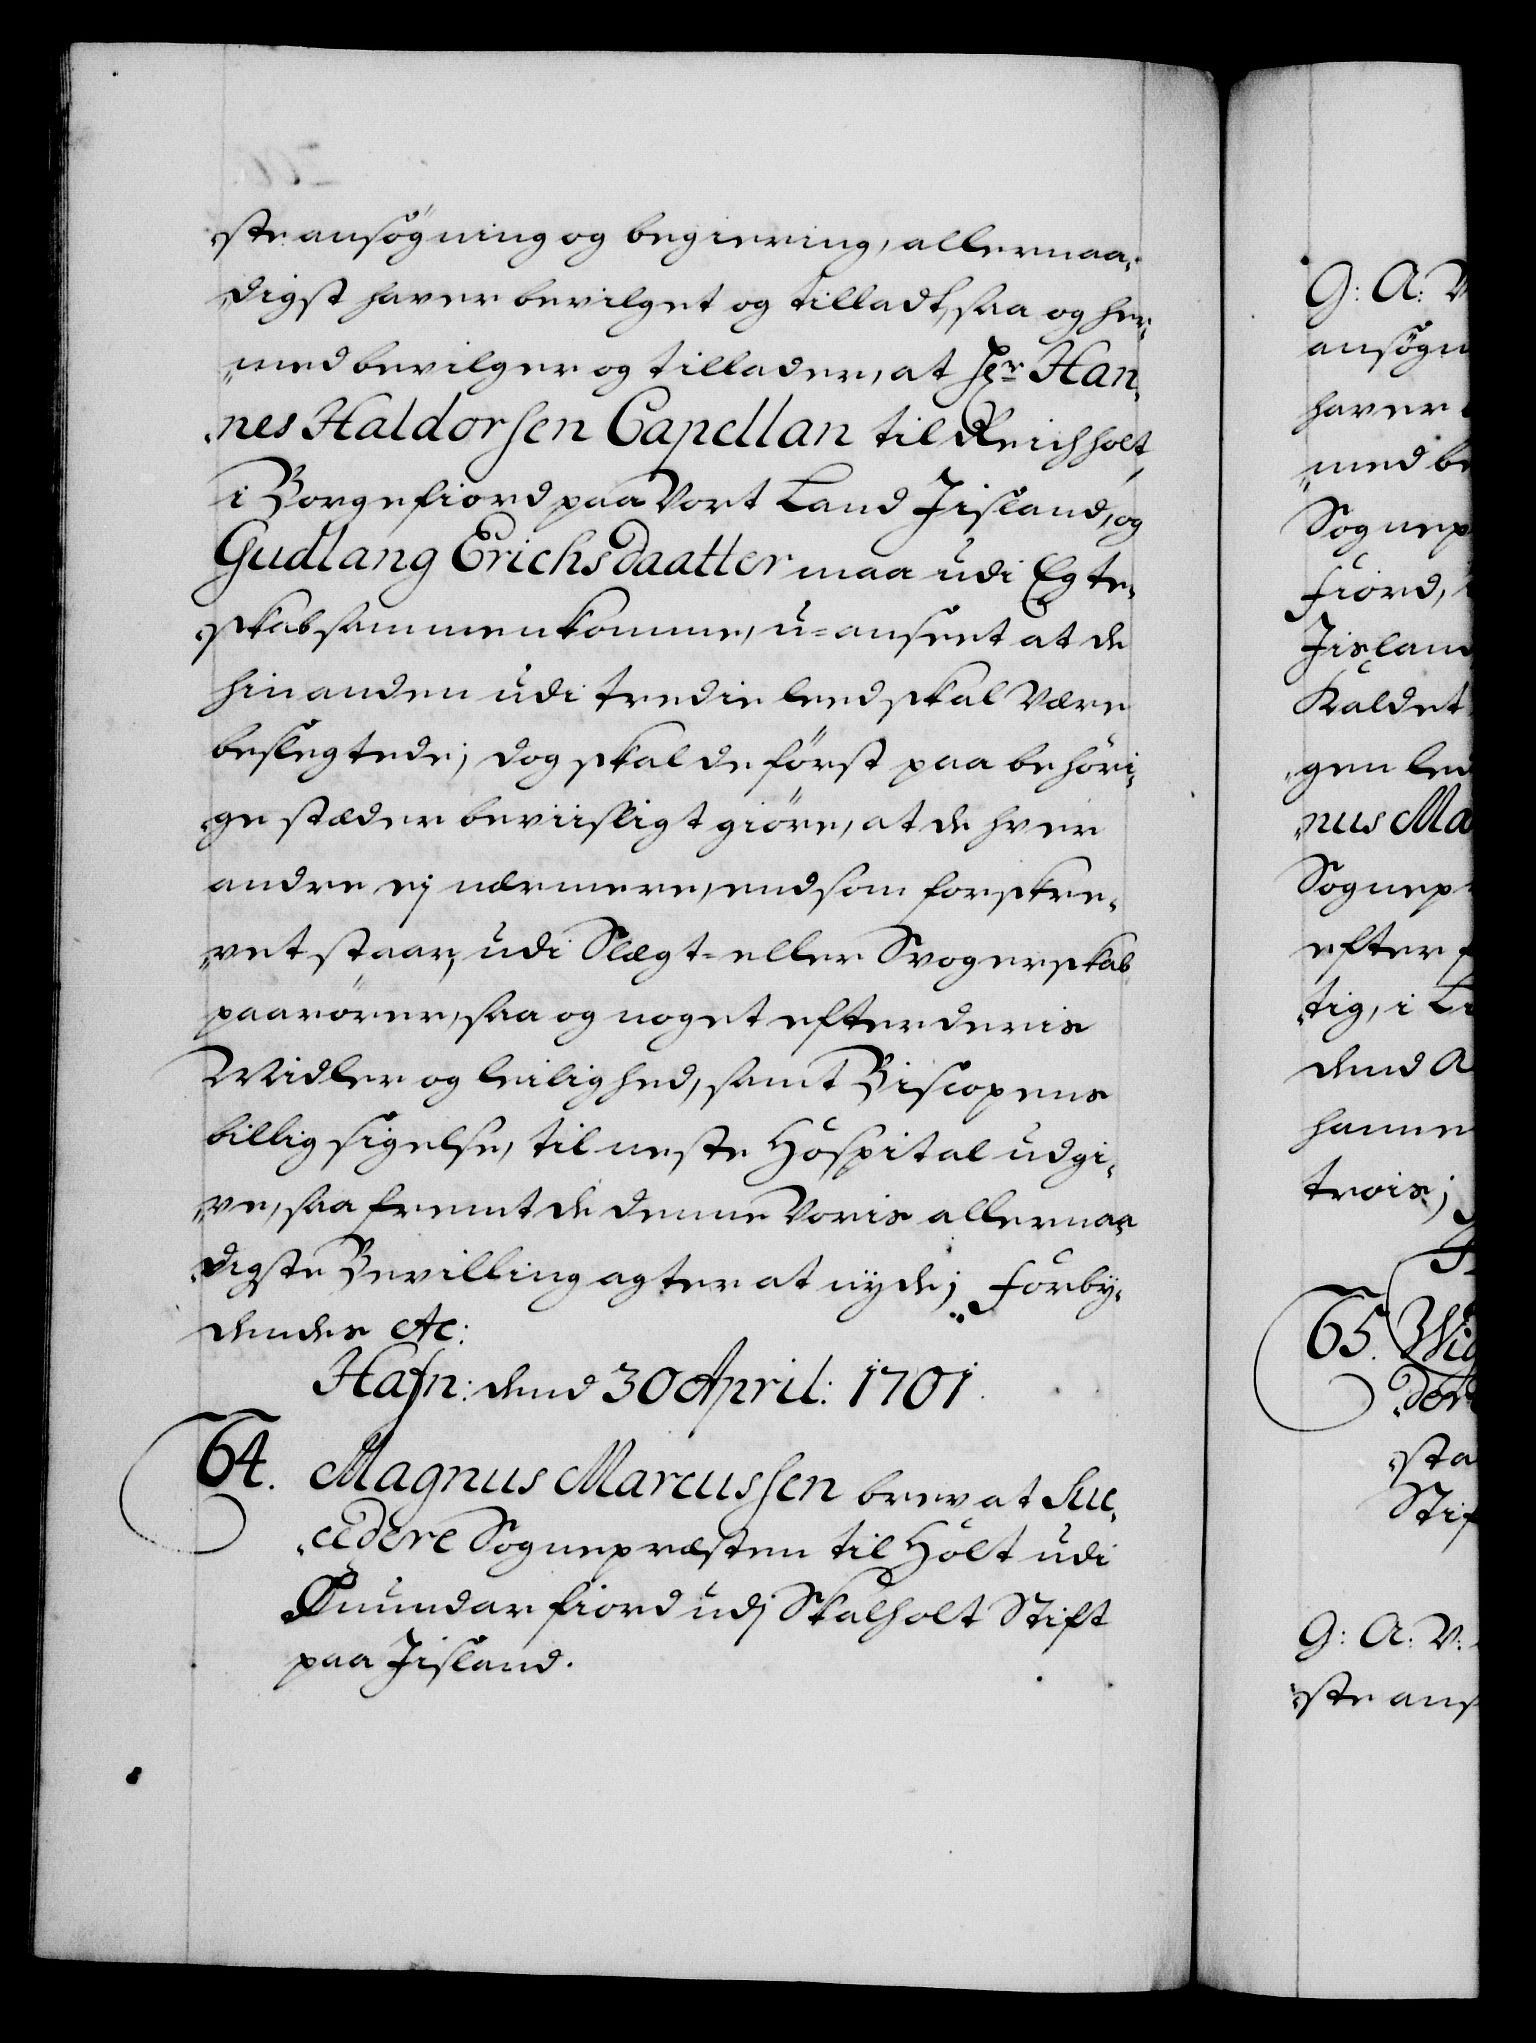 ste ansögning og begiering, allernaa-
digst haver bevilget og tilladt, saa og her-
med bevilger og tillader, at Hr. Han-
nes Haldorsen Capellan til Reichholt,
i Borgefiord paa Vort Land Jisland, og
Gudlang Erichsdaatter maa udi Egte-
skab sammenkomme, u-anseet at de
hinanden udi tredie leed skal være
beslegtede; dog skal de först paa behöri-
ge stæder beviisligt giöre, at de hver
andre ej nærmere, end som forskre-
vet staar, udi Slægt- eller Svogerskab
paarörer, saa og noget efter deris
Midler og leilighed, samt Biscopens
billig sigelse, til neste Hospital udgi-
ve, saa fremt de denne Voris allernaa-
digste Bevilling agter at nyde; Forby-
dendes etc:
Hafn: dend 30 April: 1701.
64. Magnus Marcussen brev at Suc-
cedere Sognepræsten til Holt udi
Önundar fiord udj Skalholt Stift
paa Jisland.
G: A: V
ansögn
haver
med be
Sognep
fiord,
Jisland
Kaldet
gen led
nus Ma
Sognep
efter f
tig, i Li
dend A
hanne
trois;
65. Wig
dor
sta
Stif
G: A: V:
ste ans